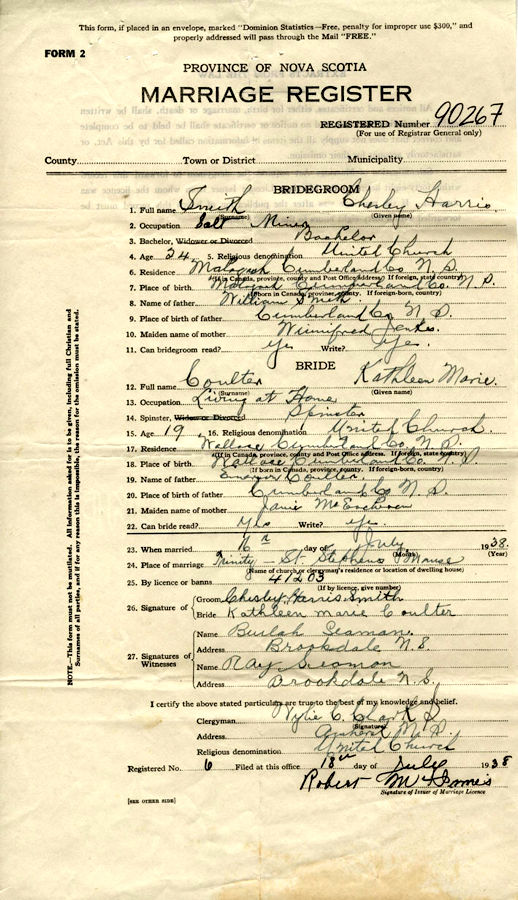 This form, if placed in an envelope, marked "Dominion Statistics—Free, penalty for improper use $300," and
properly addressed will pass through the Mail "FREE."
FORM 2
PROVINCE OF NOVA SCOTIA
MARRIAGE REGISTER
REGISTERED Number 90267
(For use of Registrar General only)
County Town or District Municipality
BRIDEGROOM
1. Full name Smith Chesley Harris
(Surname) (Given name)
2. Occupation Salt Miner
3. Bachelor, Widower or Divorced Bachelor
4. Age 24 5. Religious denomination United Church
6. Residence Malagash Cumberland Co N.S.
(If in Canada, province, county and Post Office address. If foreign, state country)
7. Place of birth Malagash Cumberland Co. N.S.
(If born in Canada, province, county. If foreign-born, country)
8. Name of father William Smith
9. Place of birth of father Cumberland Co N S.
10. Maiden name of mother Winnifred
11. Can bridegroom read? Yes Write? Yes.
BRIDE
12. Full name Coulter Kathleen Marie.
(Surname) (Given name)
13. Occupation Living at Home
14. Spinster, Widow or Divorced Spinster
15. Age 19 16. Religious denomination United Church
17. Residence Wallace Cumberland Co N.S.
(If in Canada, province, county and Post Office address. If foreign, state country)
18. Place of birth Wallace Cumberland Co. N.S.
(If born in Canada, province, county. If foreign-born, country)
19. Name of father Coulter
20. Place of birth of father Cumberland Co N S.
21. Maiden name of mother Janie McEachern
22. Can bride read? Yes Write? yes.
23. When married 16 day of July 1938.
(Month) (Year)
24. Place of marriage Trinity - St. Stephens Manse
(Name of church or clergyman's residence or location of dwelling house)
25. By licence or banns 41203
(If by licence, give number)
26. Signature of Groom Chesley Harris Smith
Bride Kathleen marie Coulter
27. Signatures of Witnesses
Name Beulah Seaman
Address Brookdale N.S.
Name Ray Seamon
Address Brookdale N.S.
I certify the above stated particulars are true to the best of my knowledge and belief.
Clergyman Wylie C. Clark
(Signature)
Address Amherst N.S.
Religious denomination United Church
Registered No. 6 Filed at this office 18th day of July 1938
Robert
Signature of Issuer of Marriage Licence
[SEE OTHER SIDE]
NOTE.—This form must not be mutilated. All information asked for is to be given, including full Christian and
Surnames of all parties, and if for any reason this is impossible, the reason for the omission must be stated.